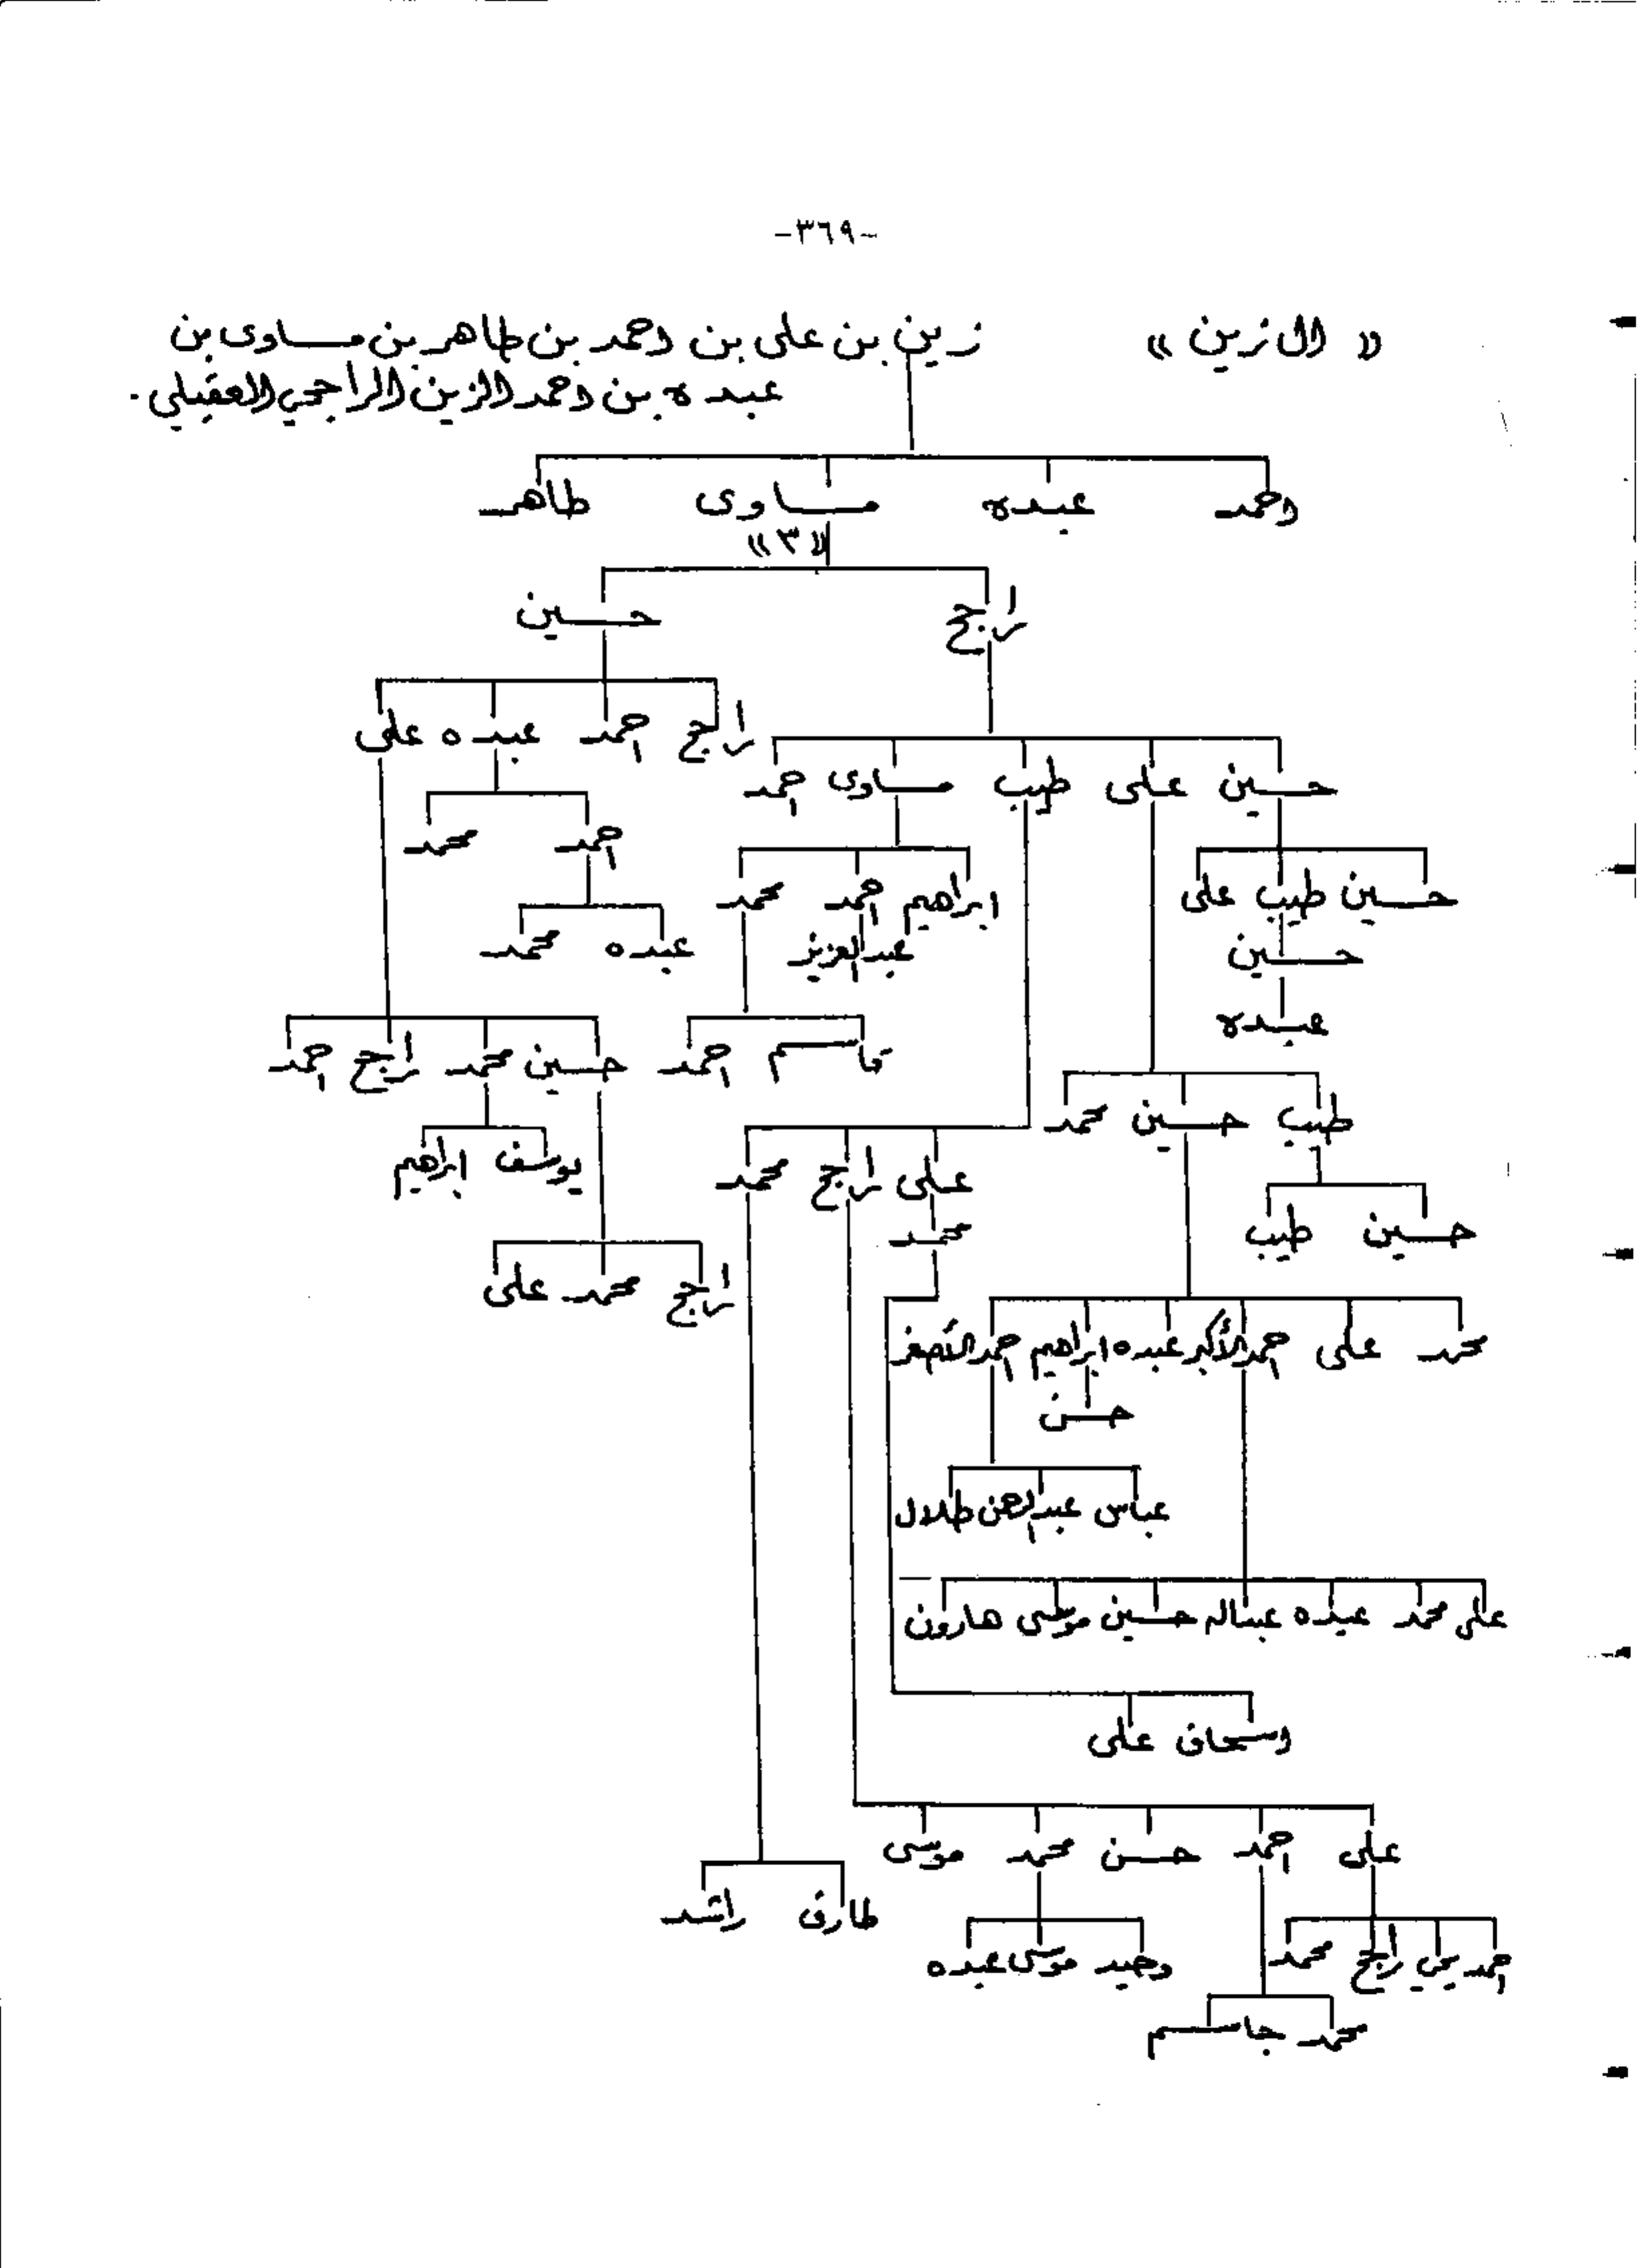 -٣٦٩-
« ال زين » زين بن على بن احمد بن طاهر بن مساوى بن
عبده بن احمد الزين الراجحي العقيلي .
احمد عبده مساوى طاهر
«٣»
راجح حسين
راجح احمد عبده على
حسين على طيب مساوى احمد
احمد محمد
حسين طيب على ابراهيم احمد محمد
عبده محمد
حسين عبدالعزيز
عبده
قاسم احمد حسين محمد راجح احمد
طيب حسين محمد
على راجح محمد يوسف ابراهيم
حسين طيب محمد
راجح محمد على
محمد على احمد الأكبر عبده ابراهيم احمد الأصغر
حسن
عباس عبدالرحمن طلال
على محمد عبده عبداله حسين موسى هارون
اسحاق على
على احمد حسن محمد موسى
طارق راشد
احمد يحي راجح محمد وحيد موسى عبده
محمد جاسم